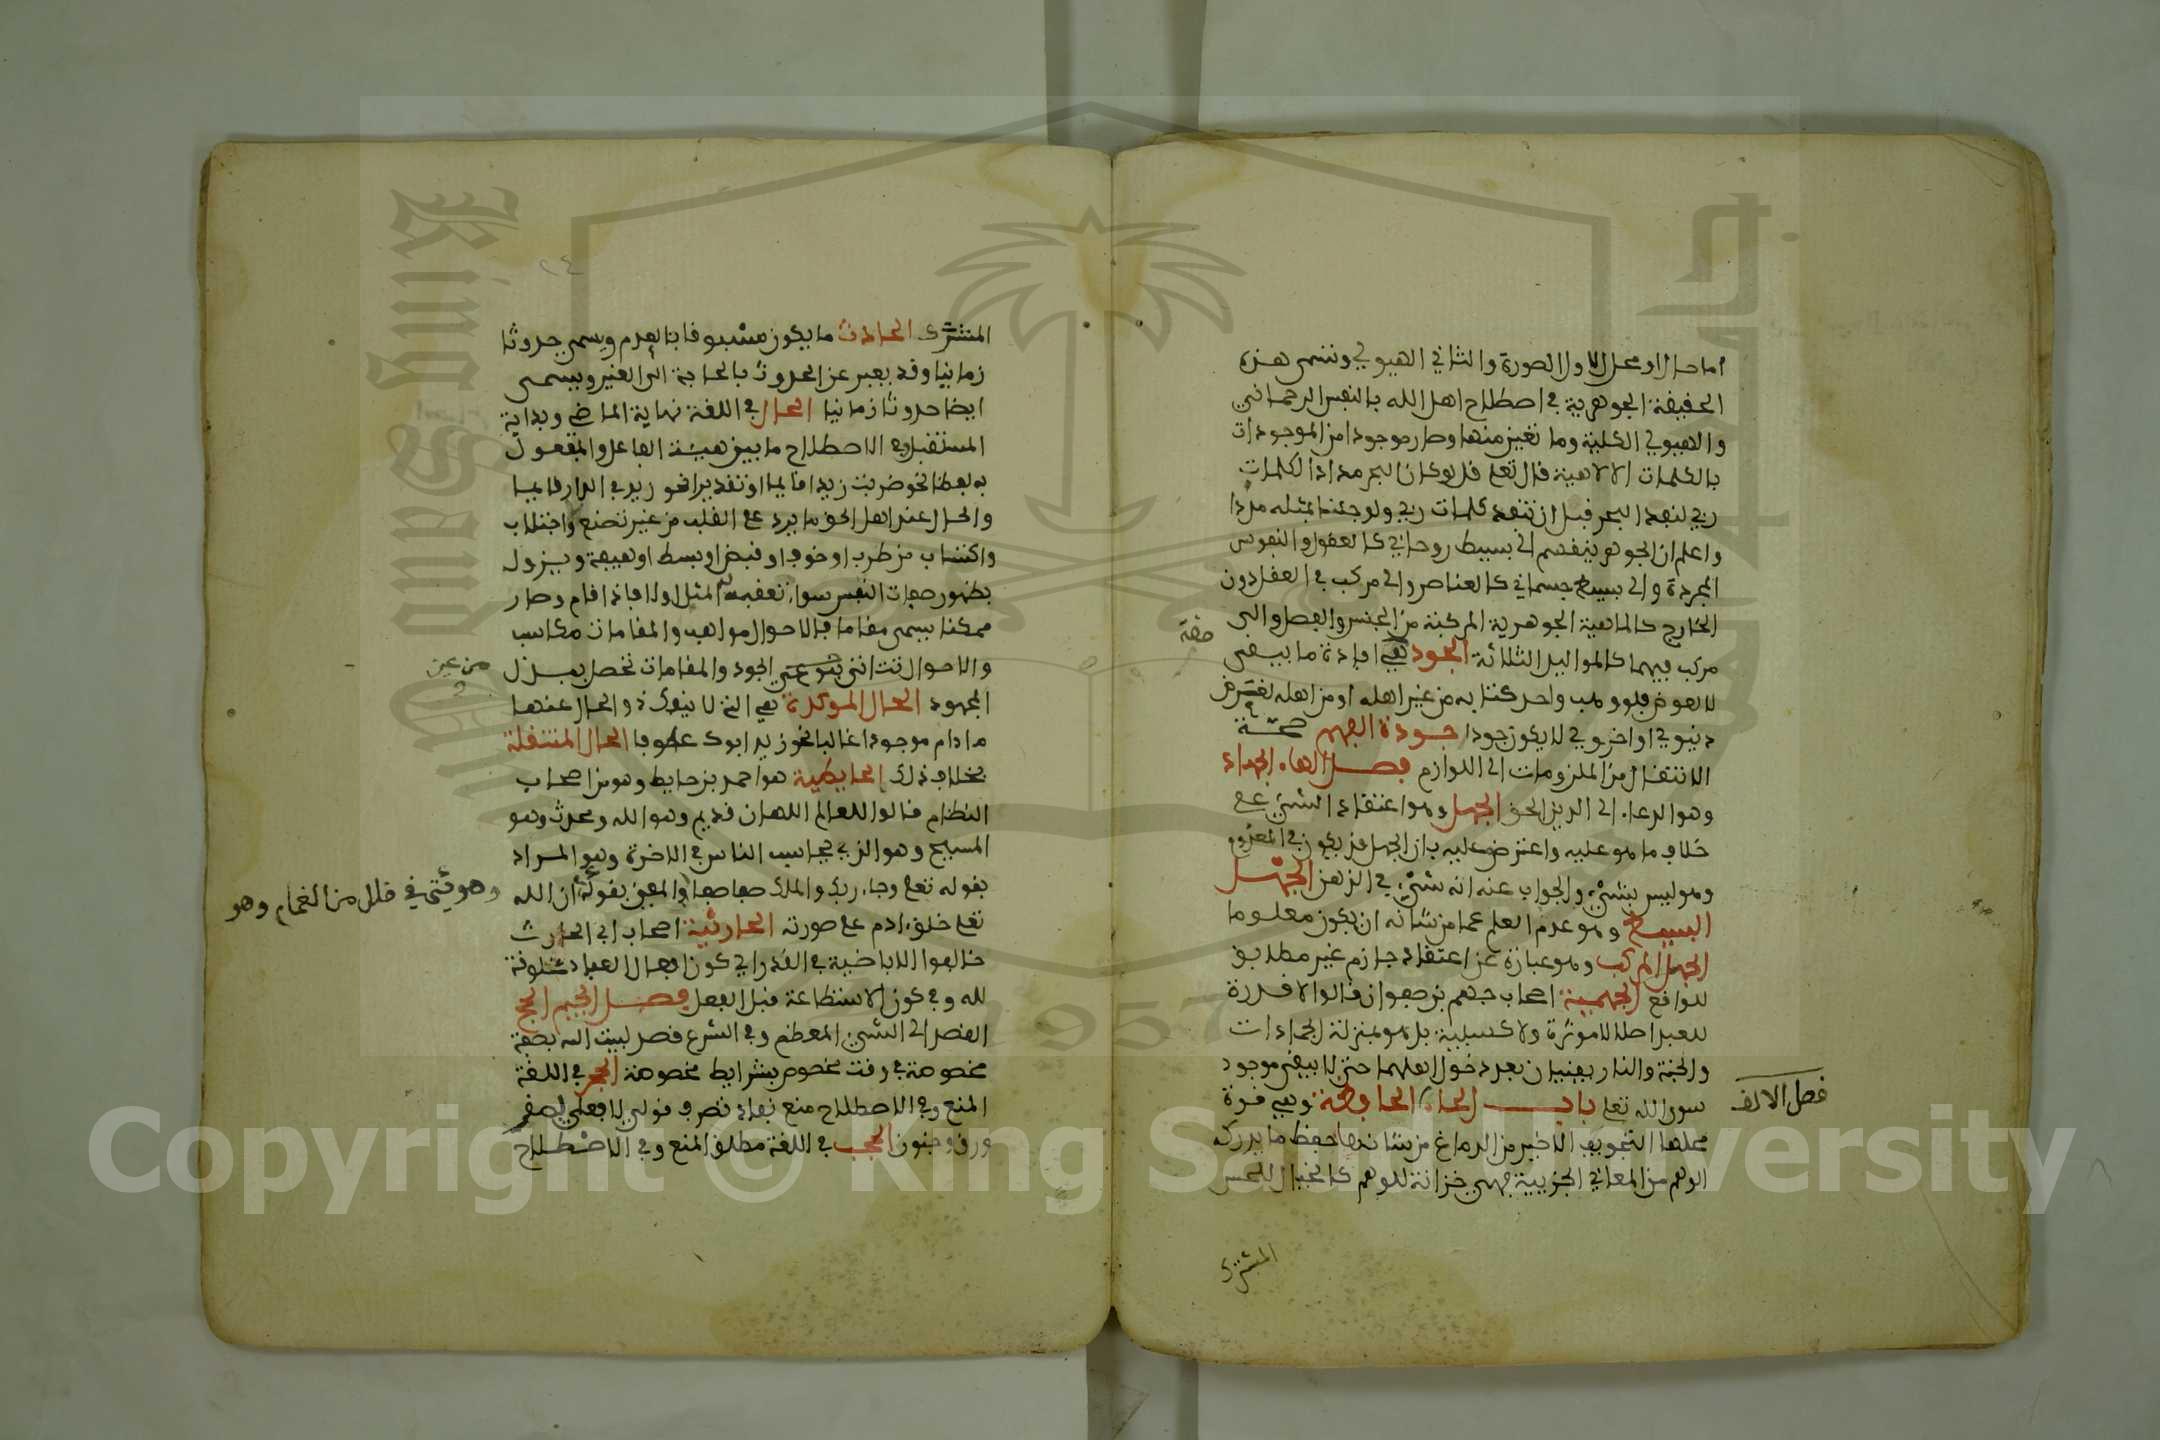 اما حال او محل الاول الصورة والثاني الهيولي وتسمى هذه
الحقيقة الجوهرية في اصطلاح اهل الله بالنفس الرحماني
والهيولي الكلية وما تعين منها وصار موجودا من الموجودات
بالكلمات الالاهية قال تعلى قل لو كان البحر مدادا لكلمات
ربي لنفد البحر قبل ان تنفد كلمات ربي ولو جئنا بمثله مددا
واعلم ان الجوهر ينقسم الى بسيط روحاني كالعقول والنفوس
المجردة والى بسيط جسماني كالعناصر والى مركب في العقل دون
الخارج كالماهية الجوهرية المركبة من الجنس والفصل والى
مركب فيهما كالمواليد الثلاثة الجود هي افادة ما ينبغي
صفة
لا لعوض فلو وهب واحد كتابه من غير اهله او من اهله لغرض
دنيوي او اخروي لا يكون جودا جودة الفهم صحة
الانتقال من الملزومات الى اللوازم فصل الهاء الجهاد
وهو الدعاء الى الدين الحق الجهل وهو اعتقاد الشيء على
خلاف ما هو عليه واعترض عليه بان الجهل قد يكون في المعدوم
وهو ليس بشيء والجواب عنه انه شيء في الذهن الجهل
البسيط وهو عدم العلم عما من شانه ان يكون معلوما
الجهل المركب وهو عبارة عن اعتقاد جازم غير مطابق
للواقع الجهمية اصحاب جهم بن صفوان قالوا لا قدرة
للعبد اصلا لا موثرة ولا كسبية بل هو بمنزلة الجمادات
والجنة والنار يفنيان بعد دخول اهلهما حتى لا يبقى موجود
سوى الله تعلى باب الحاء الحافظة وهي قوة
فصل الالف
محلها التجويف الاخير من الدماغ من شانها حفظ ما يدركه
الوهم من المعاني الجزيية فهي خزانة للوهم كالخيال للحس
المشترك
٢٤
المشترك الحادث ما يكون مسبوقا بالعدم ويسمى حدوثا
زمانيا وقد يعبر عن الحدوث بالحاجة الى الغير ويسمى
ايضا حدوثا زمانيا الحال في اللغة نهاية الماضي وبداية
المستقبل وفي الاصطلاح ما يبين هيئة الفاعل والمفعول
به لفظا نحو ضربت زيدا قايما او تقديرا نحو زيد في الدار قايما
والحال عند اهل الحق ما يرد على القلب من غير تصنع واجتلاب
واكتساب من طرب او خوف او قبض او بسط او هيبة ويزول
بظهور صفات النفس سواء تعقبه المثل اولا فاذا قام وصار
ممكنا يسمى مقاما فالاحوال مواهب والمقامات مكاسب
والاحوال تت اتى من عين الجود والمقامات تحصل ببذل
من عين
المجهود الحال الموكدة هي التي لا ينفك ذو الحال عنها
ما دام موجودا غالبا نحو زيد ابوك عطوفا الحال المنتقلة
بخلاف ذلك الحايطية هو احمد بن حايط وهو من اصحاب
النظام قالوا للعالم اللهان قديم وهو الله ومحدث وهو
المسيح وهو الذي يحاسب الناس في الاخرة وهو المراد
بقوله تعلى وجاء ربك والملك صفا صفا والمعنى بقوله ان الله
وهو يتي في ظلل من الغمام وهو
تعلى خلق ادم على صورته الحارثية اصحاب ابي الحارث
خالفوا الاباضية في القدر اي كون افعال العباد مخلوقة
لله وفي كون الاستطاعة قبل الفعل فصل الجيم الحج
القصد الى الشيء المعظم وفي الشرع قصد لبيت الله بصفة
مخصوصة في وقت مخصوص بشرايط مخصوصة الحجر في اللغة
المنع وفي الاصطلاح منع نفاذ تصرف قولي لا فعلي لصغر
ورق وجنون الحجب في اللغة مطلق المنع وفي الاصطلاح
King Saud University
1957
Copyright © King Saud University